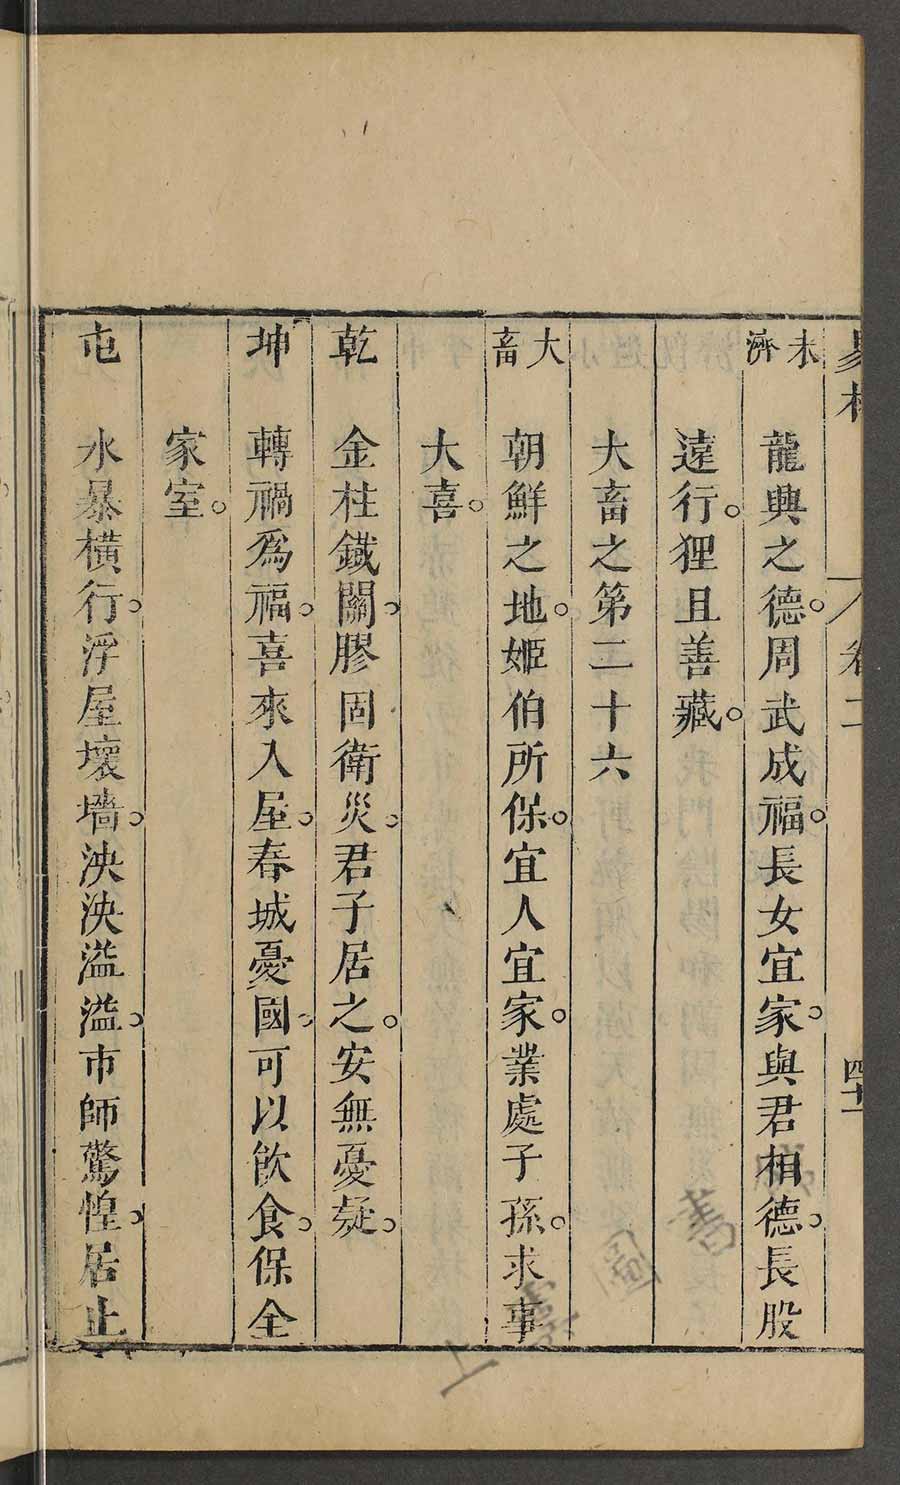 易林 卷二 四十一
未濟 龍興之德。周武成福。長女宜家。與君相德。長股
遠行。狸且善藏。
大畜之第二十六
大畜 朝鮮之地。姬伯所保。宜人宜家。業處子孫。求事
大喜。
乾 金柱鐵關。膠固衛災。君子居之。安無憂疑。
坤 轉禍為福。喜來入屋。春城憂國。可以飲食。保全
家室。
屯 水暴橫行。浮屋壞墻。泱泱溢溢。市師驚惶。居止